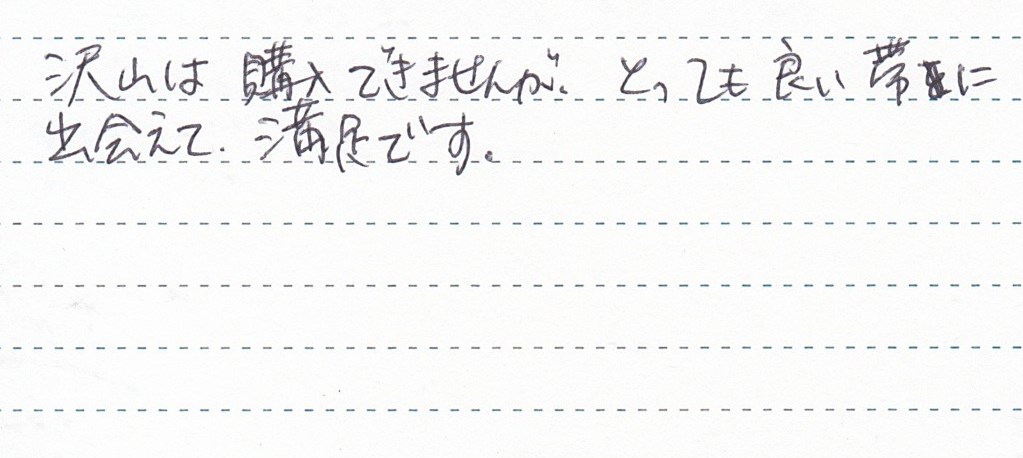 沢山は購入できませんが、とっても良い帯に
出会えて、満足です。